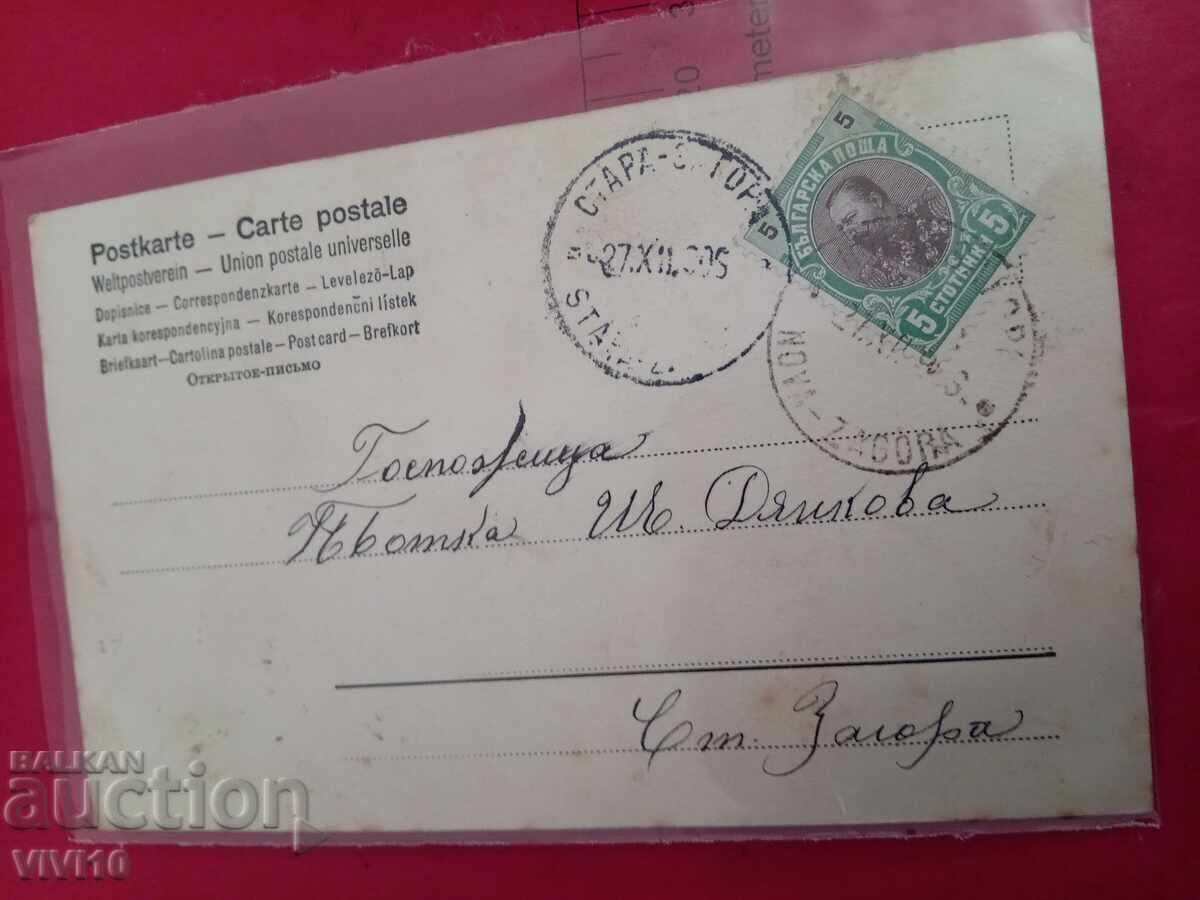 20 3
meter
Postkarte – Carte postale
Weltpostverein – Union postale universelle
Dopisnice – Correspondenzkarte – Levelező-Lap
Karta korespondencyjna – Korespondenčni listek
Briefkaart – Cartolina postale – Post card – Brefkort
Открытое-письмо
СТАРА-ЗАГОРА
27.XII.905
STARA-Z.
5
БЪЛГАРСКА ПОЩА
5
5 СТОТИНКИ 5
ZAGORA
Госпожица
Цвѣтка Ив. Дянкова
Ст. Загора
17
BALKAN
auction
VIVI10